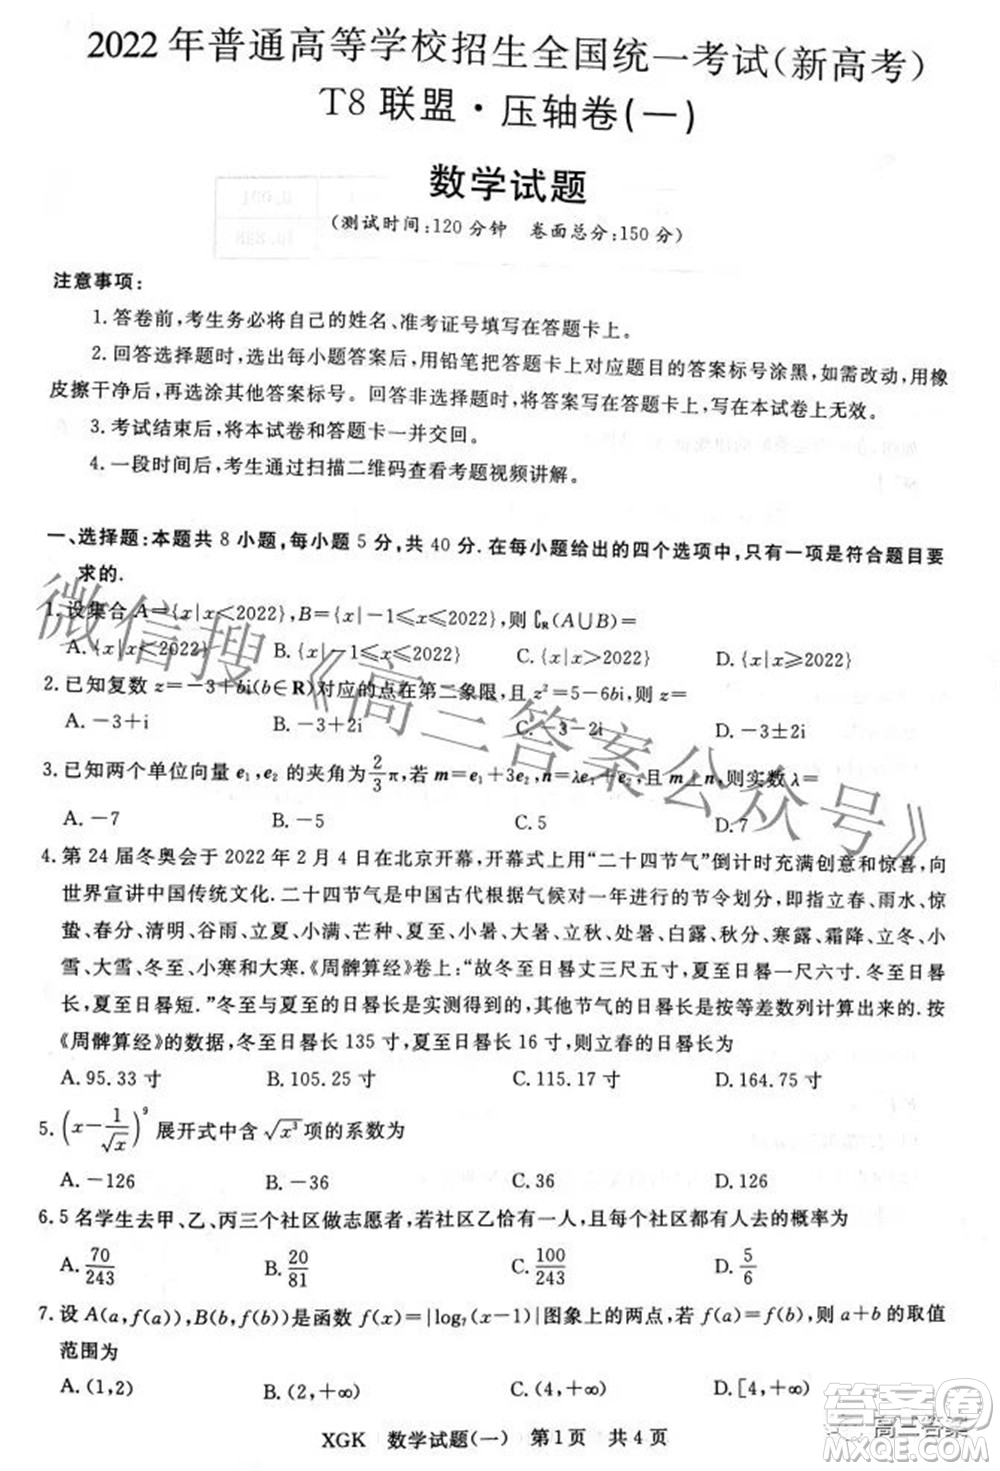 2022年普通高等学校招生全国统一考试(新高考)
T8联盟·压轴卷(一)
数学试题
(测试时间:120分钟 卷面总分:150分)
注意事项:
1.答卷前,考生务必将自己的姓名、准考证号填写在答题卡上。
2.回答选择题时,选出每小题答案后,用铅笔把答题卡上对应题目的答案标号涂黑,如需改动,用橡
皮擦干净后,再选涂其他答案标号。回答非选择题时,将答案写在答题卡上,写在本试卷上无效。
3.考试结束后,将本试卷和答题卡一并交回。
4.一段时间后,考生通过扫描二维码查看考题视频讲解。
一、选择题:本题共8小题,每小题5分,共40分.在每小题给出的四个选项中,只有一项是符合题目要
求的.
1.设集合A={x|x⩽2022},B={x|-1⩽x⩽2022},则∁R(A∪B)=
A.{x|x⩽2022} B.{x|-1⩽x⩽2022} C.{x|x>2022} D.{x|x⩾2022}
2.已知复数z=-3+bi(b∈R)对应的点在第二象限,且z²=5-6bi,则z=
A.-3+i B.-3+2i C.-3-2i D.-3±2i
3.已知两个单位向量e₁,e₂的夹角为2/3π,若m=e₁+3e₂,n=λe₁+e₂,且m⊥n,则实数λ=
A.-7 B.-5 C.5 D.7
4.第24届冬奥会于2022年2月4日在北京开幕,开幕式上用“二十四节气”倒计时充满创意和惊喜,向
世界宣讲中国传统文化.二十四节气是中国古代根据气候对一年进行的节令划分,即立春、雨水、惊
蛰、春分、清明、谷雨、立夏、小满、芒种、夏至、小暑、大暑、立秋、处暑、白露、秋分、寒露、霜降、立冬、小
雪、大雪、冬至、小寒和大寒.《周髀算经》卷上:“故冬至日晷丈三尺五寸,夏至日晷一尺六寸.冬至日晷
长,夏至日晷短.”冬至与夏至的日晷长是实测得到的,其他节气的日晷长是按等差数列计算出来的.按
《周髀算经》的数据,冬至日晷长135寸,夏至日晷长16寸,则立春的日晷长为
A.95.33寸 B.105.25寸 C.115.17寸 D.164.75寸
5.(x-1/√x)⁹展开式中含√x³项的系数为
A.-126 B.-36 C.36 D.126
6.5名学生去甲、乙、丙三个社区做志愿者,若社区乙恰有一人,且每个社区都有人去的概率为
A.70/243 B.20/81 C.100/243 D.5/6
7.设A(a,f(a)),B(b,f(b))是函数f(x)=|log₇(x-1)|图象上的两点,若f(a)=f(b),则a+b的取值
范围为
A.(1,2) B.(2,+∞) C.(4,+∞) D.[4,+∞)
XGK 数学试题(一) 第1页 共4页
微信搜《高三答案公众号》
答案圈
高三答案